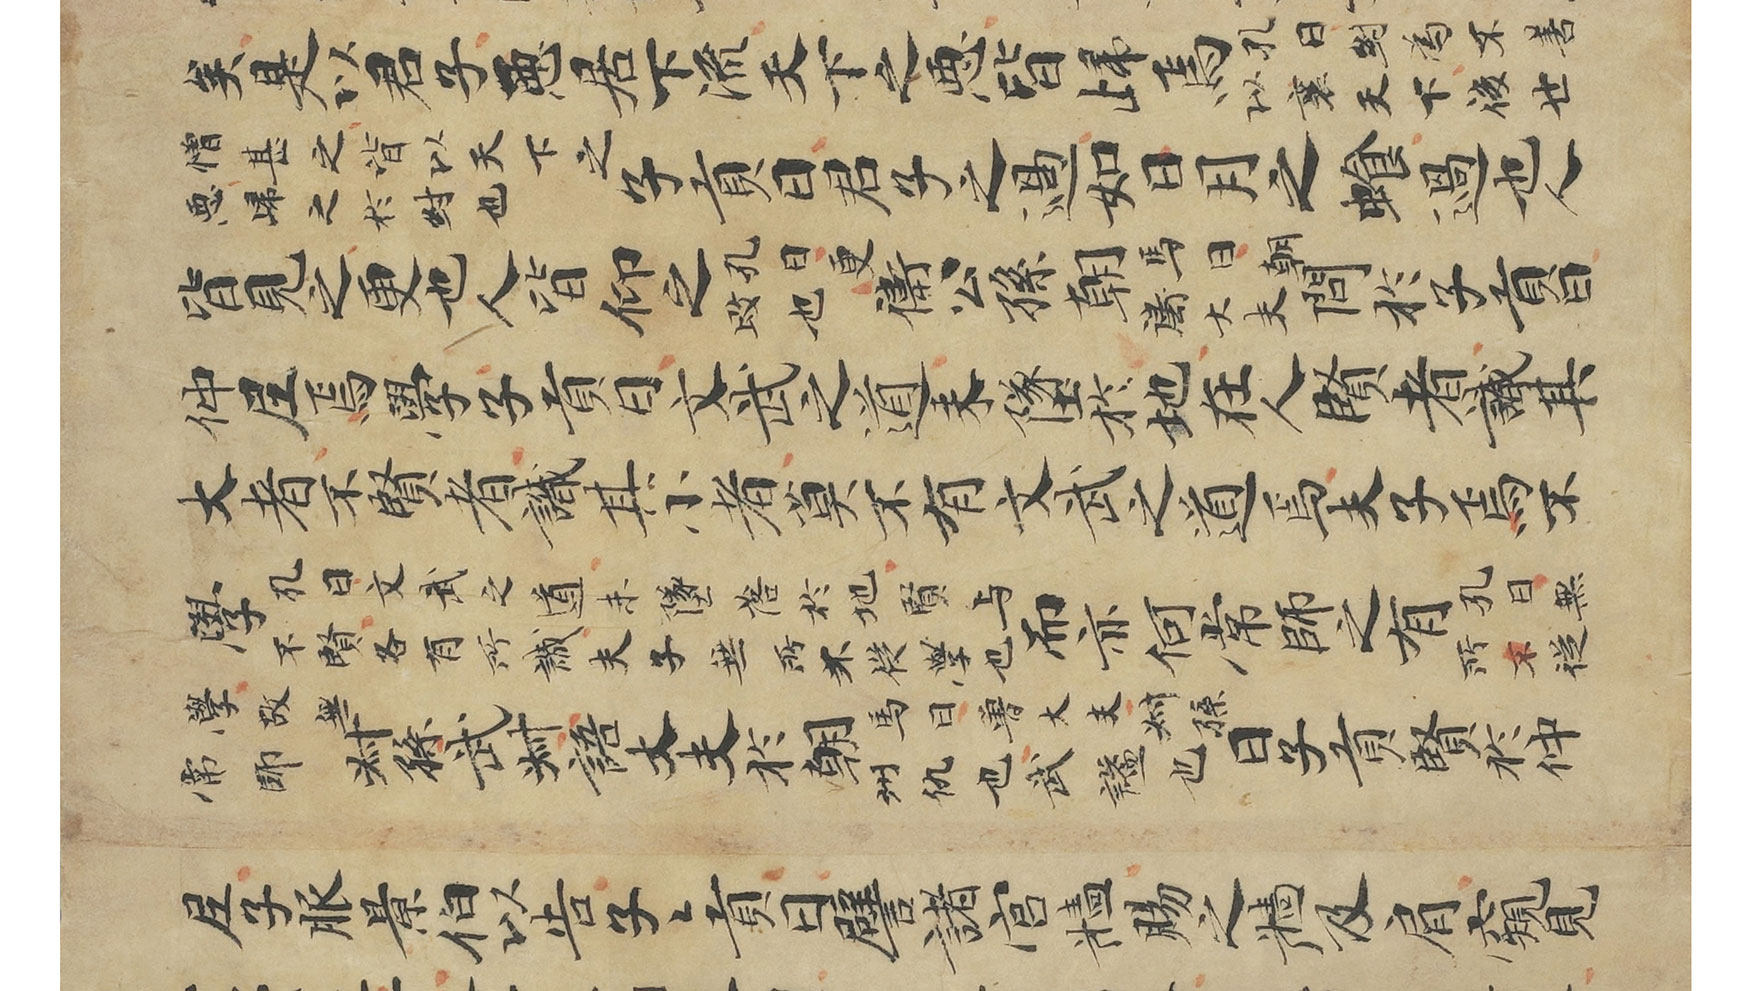 矣是以君子惡居下流天下之惡皆歸焉孔曰紂為不善以喪天下後世
憎甚之皆以天下之惡歸之於紂也子貢曰君子之過如日月之蝕過也人
皆見之更也人皆仰之孔曰更改也衛公孫朝馬曰朝衛大夫問於子貢曰
仲尼焉學子貢曰文武之道未墜於地在人賢者識其
大者不賢者識其小者莫不有文武之道焉夫子焉不
學孔曰文武之道未墜落於地賢与不賢各有所識夫子無所不從學也而亦何常師之有孔曰無所不從
學故無常師叔孫武叔語大夫於朝馬曰魯大夫叔孫州仇也武謚也曰子貢賢於仲
尼子服景伯以告子〻貢曰譬諸宮牆賜之牆及肩窺見